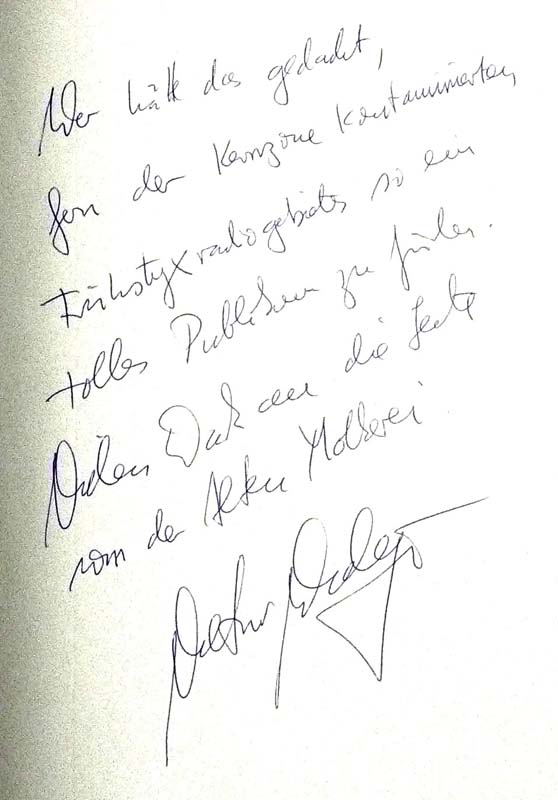 Wer hätte das gedacht,
fern der Kernzone kontaminierten
Frühstyxradiogebietes so ein
tolles Publikum zu finden.
Vielen Dank an die Leute
von der Alten Molkerei